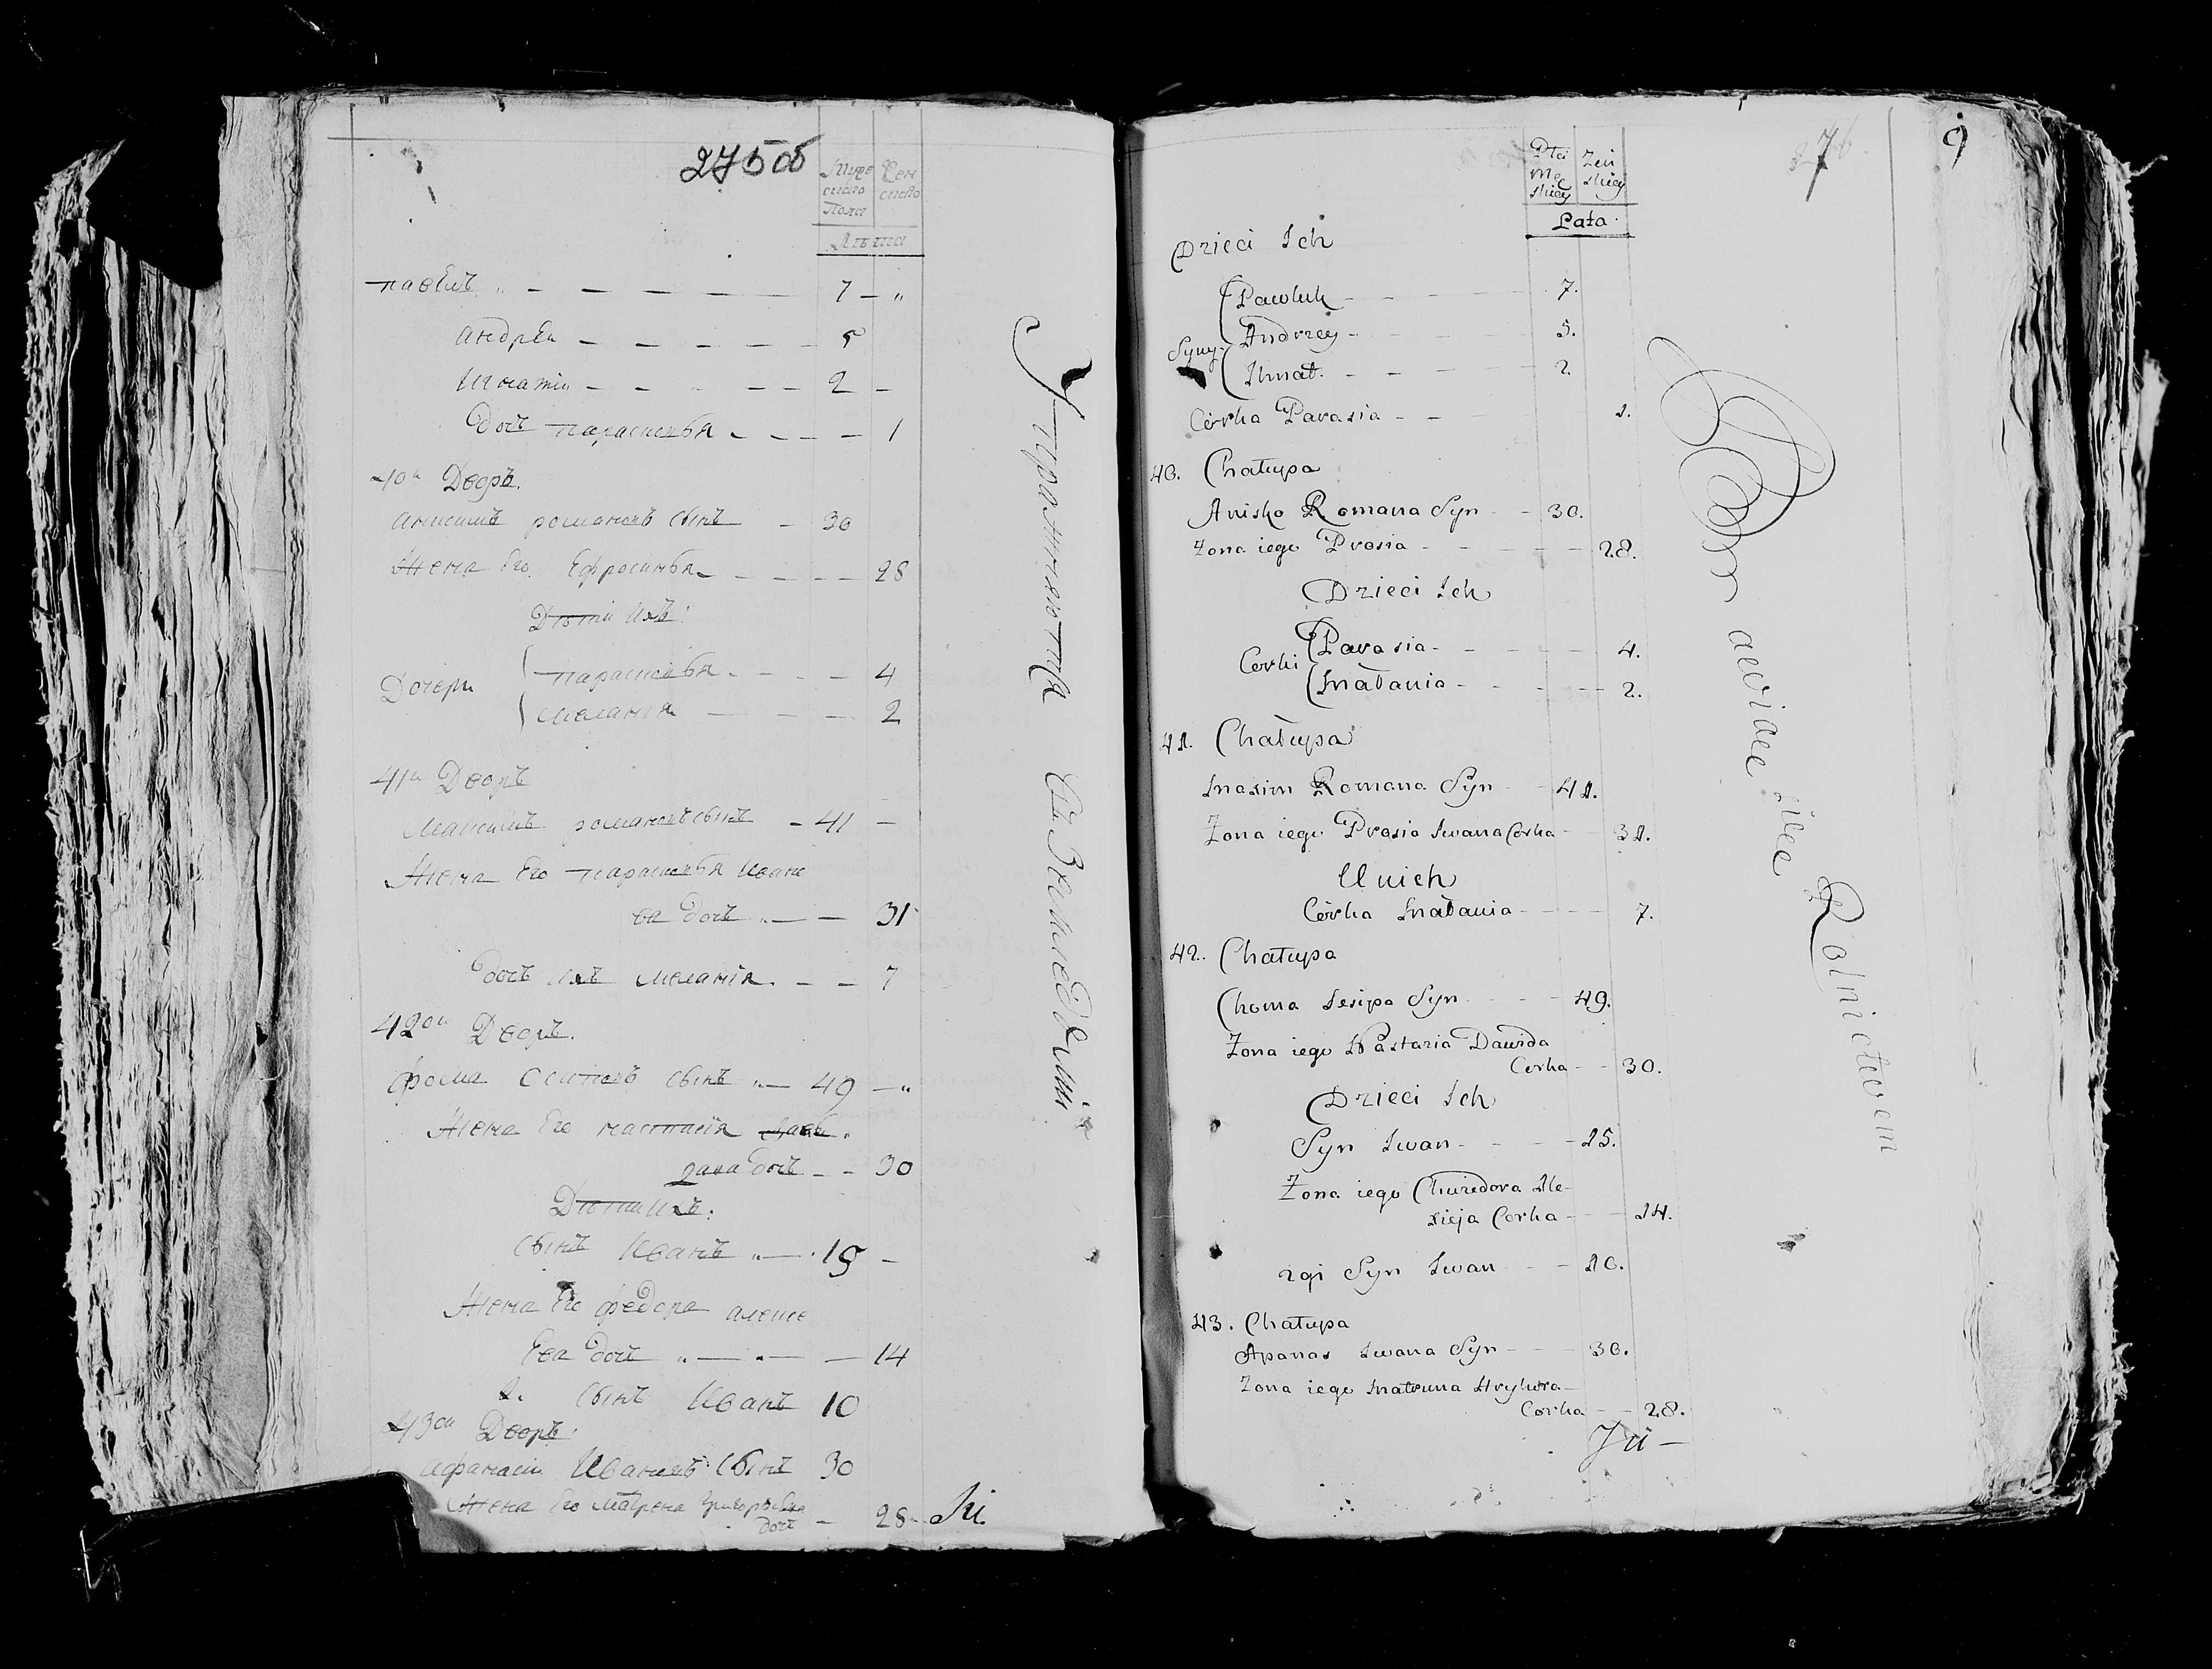 275 об
Муже
скаго
Пола
Жен
скаго
Лѣта
павелъ 7
андрей 5
Игнатий 2
дочь парасковья 1
40й Дворъ.
анисимъ романовъ сынъ 30
Жена Его Ефросинья 28
Дѣти Ихъ:
Дочери
парасковья 4
мелания 2
41й Дворъ
Максимъ романовъ сынъ 41
Жена Его парасковья Ивано
ва дочь 31
дочь ихъ мелания 7
42ой Дворъ.
фома Осиповъ сынъ 49
Жена Его настасия
дочь 30
Дѣти Ихъ:
сынъ Иванъ 15
Жена Его федора алексе
ева дочь 14
2. сынъ Иванъ 10
43ой Дворъ.
афанасий Ивановъ сынъ 30
Жена Его Матрена Григорьева
дочь 28
Упражняется
9
Płci
Mę
skiey
Żeń
skiey
Lata
Dzieci Ich
Syny
Pawluk 7.
Andrzey 5.
Ihnat. 2
Córka Parasia 1.
40. Chałupa
Anisko Romana Syn 30.
Żona iego Prosia 28.
Dzieci Ich
Corki
Parasia 4.
Małania 2.
41. Chałupa
Maxim Romana Syn 41.
Żona iego Prosia Iwana Corka 31.
U nich
Córka Małania 7.
42. Chałupa
Choma Iesipa Syn 49.
Żona iego Nastazia Dawida
Corka 30.
Dzieci Ich
Syn Iwan 15.
Żona iego Chwiedora Ale-
xieja Corka 14.
2gi Syn Iwan 10.
43. Chałupa
Apanas Iwana Syn 30.
Żona iego Matruna Hryhora
Corka 28.
Bawiące się Rolnictwem